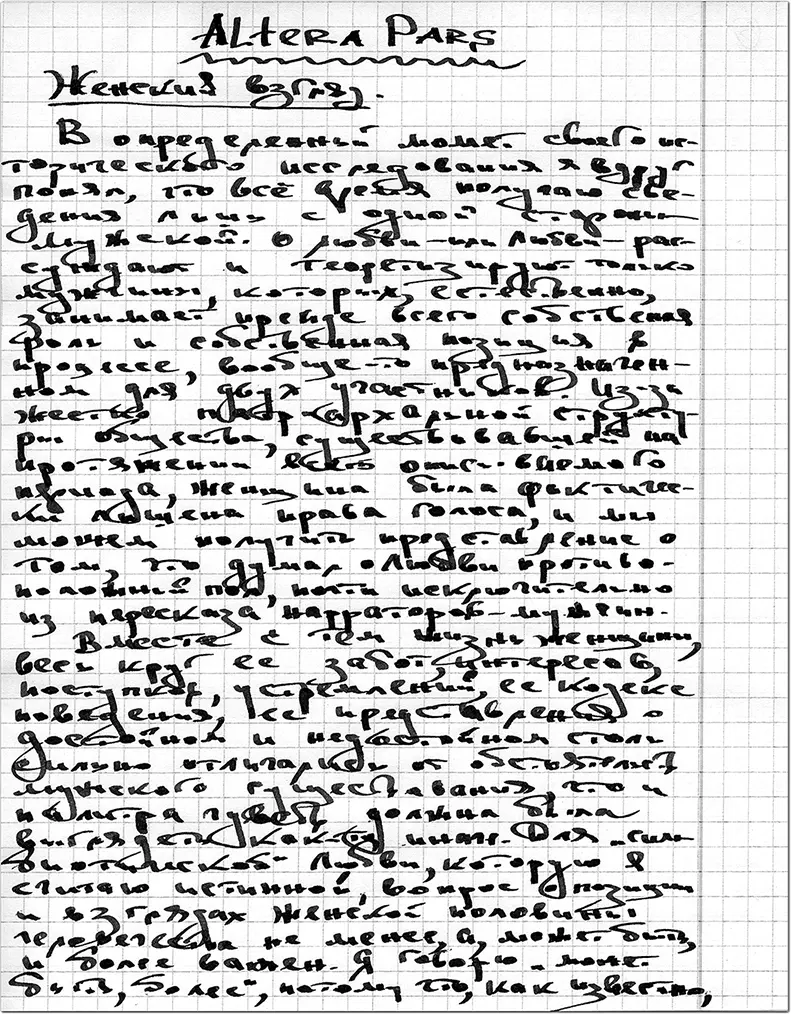 ALTERA PARS
Женский взгляд.
В определенный момент своего ис-
торического исследования я вдруг
понял, что всё время получаю све-
дения лишь с одной стороны –
мужской. О любви – или Любви – рас-
суждают и теоретизируют только
мужчины, которых, естественно,
занимает прежде всего собственная
роль и собственная позиция в
процессе, вообще-то предназначен-
ном для двух участников. Из-за
жестко патриархальной структу-
ры общества, существовавшей на
протяжении всего описываемого
периода, женщина была фактичес-
ки лишена права голоса, и мы
можем получить представление о
том, что думал о Любви противо-
положный пол, почти исключительно
из пересказа нарраторов-мужчин.
Вместе с тем жизнь женщины,
весь круг ее забот, интересов,
поступков, устремлений, ее кодекс
поведения, ее представления о
достойном и недостойном столь
сильно отличались от обстоятельств
мужского существования, что и
палитра чувств должна была
выглядеть как-то иначе. Для „сим-
биотической“ Любви, которую я
считаю истинной, вопрос о позиции
и взглядах женской половины
человечества не менее, а, может быть,
и более важен. Я говорю „может
быть, более“, потому что, как известно,